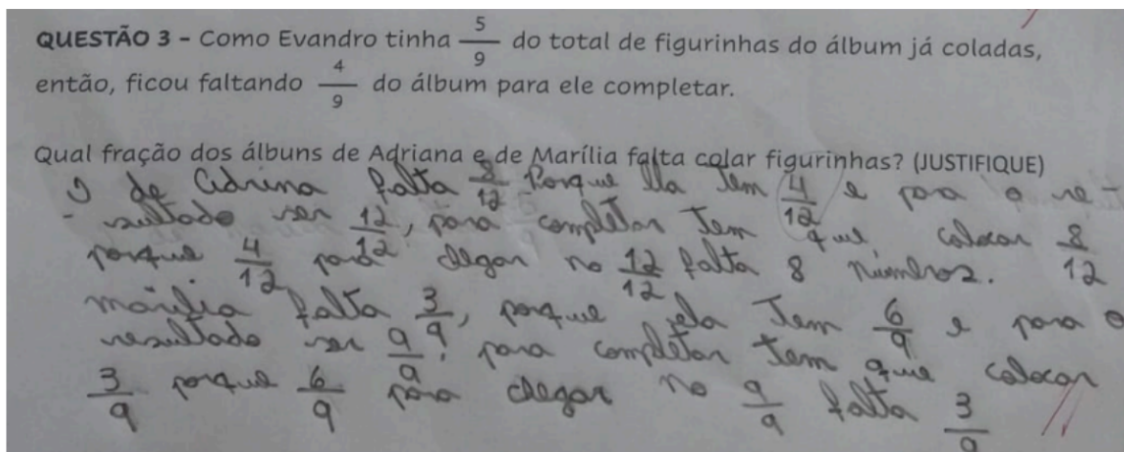 QUESTÃO 3 - Como Evandro tinha 5/9 do total de figurinhas do álbum já coladas,
então, ficou faltando 4/9 do álbum para ele completar.
Qual fração dos álbuns de Adriana e de Marília falta colar figurinhas? (JUSTIFIQUE)
O de Adrina falta 8/12 Porque Ela tem 4/12 e para o re-
sultado ser 12/12, para completar tem que colocar 8/12
porque 4/12 para chegar no 12/12 falta 8 números.
marília falta 3/9, porque ela tem 6/9 e para o
resultado ser 9/9, para completar tem que colocar
3/9 porque 6/9 para chegar no 9/9 falta 3/9